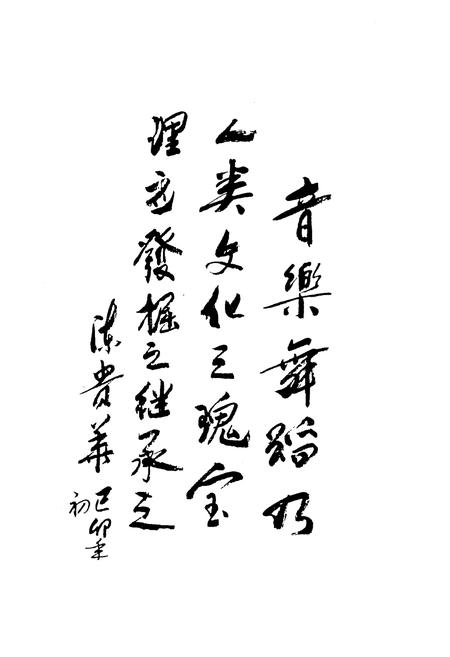 音樂舞蹈乃
人类文化之瑰宝
理应發掘之继承之
陈贵華
己卯年
初